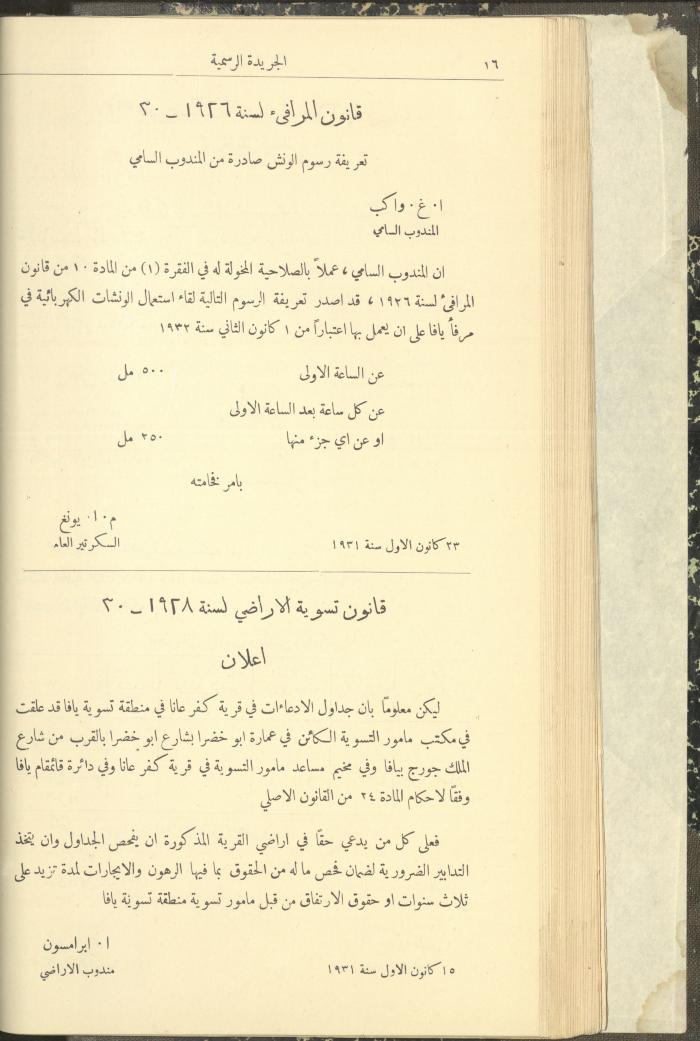 ١٦ الجريدة الرسمية
قانون المرافىء لسنة ١٩٢٦ ــ ٣٠
تعريفة رسوم الونش صادرة من المندوب السامي
ا · غ · واكب
المندوب السامي
ان المندوب السامي ، عملاً بالصلاحية المخولة له في الفقرة (١) من المادة ١٠ من قانون
المرافئ لسنة ١٩٢٦ ، قد اصدر تعريفة الرسوم التالية لقاء استعمال الونشات الكهربائية في
مرفأ يافا على ان يعمل بها اعتباراً من ١ كانون الثاني سنة ١٩٣٢
عن الساعة الاولى ٥٠٠ مل
عن كل ساعة بعد الساعة الاولى
او عن اي جزء منها ٢٥٠ مل
بامر فخامته
م · ا · يونغ
٢٣ كانون الاول سنة ١٩٣١ السكرتير العام
قانون تسوية الاراضي لسنة ١٩٢٨ ــ ٣٠
اعلان
ليكن معلومًا بان جداول الادعاءات في قرية كفر عانا في منطقة تسوية يافا قد علقت
في مكتب مامور التسوية الكائن في عمارة ابو خضرا بشارع ابو خضرا بالقرب من شارع
الملك جورج بيافا وفي مخيم مساعد مامور التسوية في قرية كفر عانا وفي دائرة قائمقام يافا
وفقًا لاحكام المادة ٢٤ من القانون الاصلي
فعلى كل من يدعي حقًا في اراضي القرية المذكورة ان يفحص الجداول وان يتخذ
التدابير الضرورية لضمان فحص ما له من الحقوق بما فيها الرهون والايجارات لمدة تزيد على
ثلاث سنوات او حقوق الارتفاق من قبل مامور تسوية منطقة تسوية يافا
ا · ابرامسون
١٥ كانون الاول سنة ١٩٣١ مندوب الاراضي